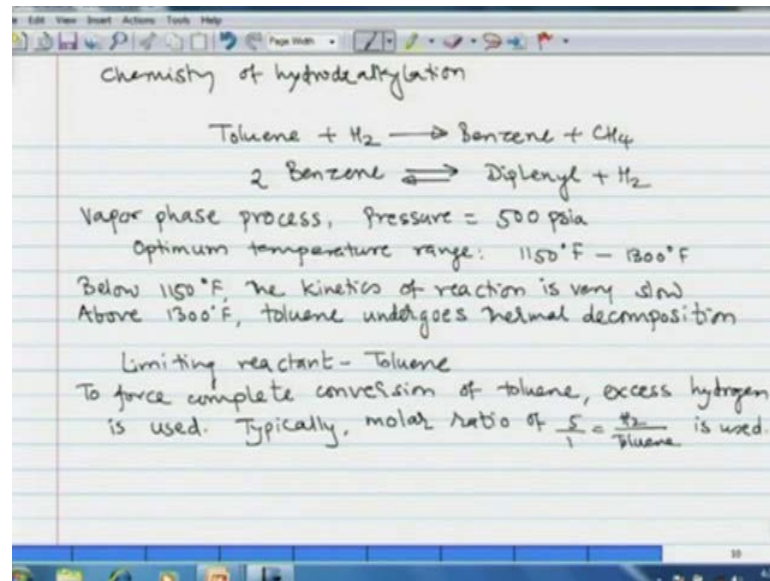 Edit View Insert Actions Tools Help
Page Width
Chemistry of hydrodealkylation
Toluene + H2 → Benzene + CH4
2 Benzene ⇌ Diphenyl + H2
Vapor phase process, Pressure = 500 psia
Optimum temperature range: 1150°F - 1300°F
Below 1150°F, the kinetics of reaction is very slow
Above 1300°F, toluene undergoes thermal decomposition
Limiting reactant - Toluene
To force complete conversion of toluene, excess hydrogen
is used. Typically, molar ratio of 5/1 = H2/Toluene is used.
10